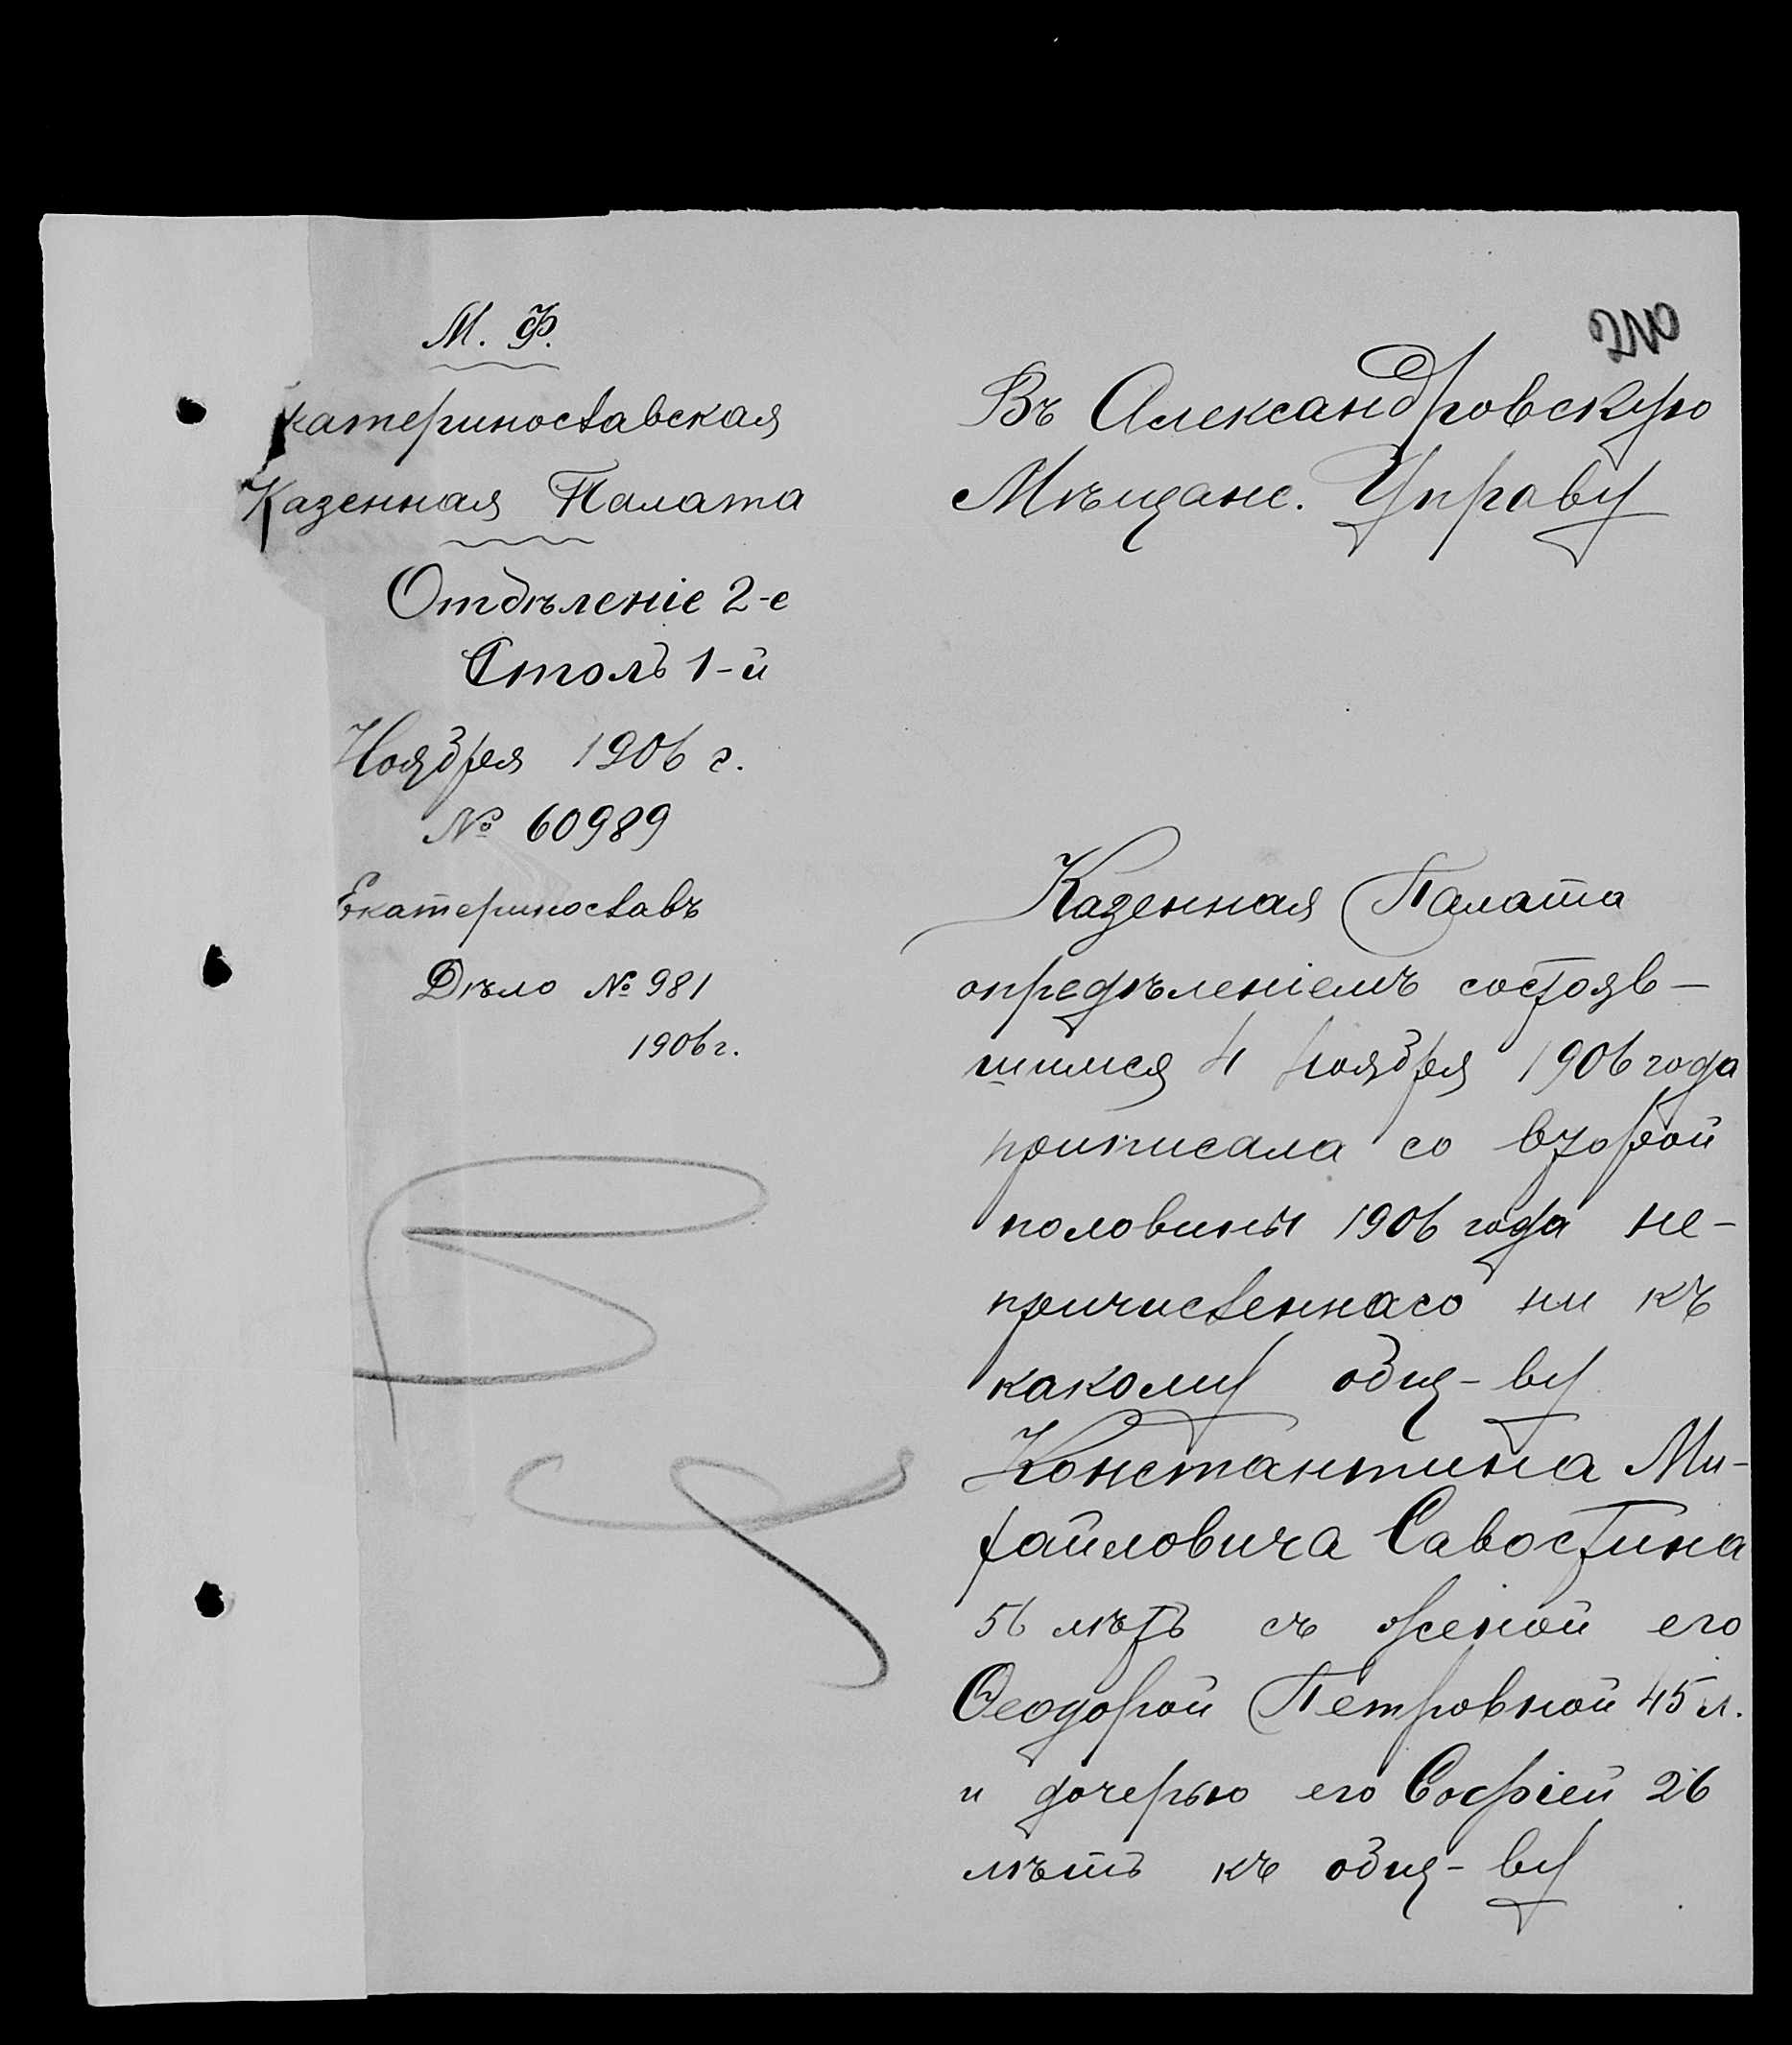 М. Ф.
катеринославская
Казенная Палата
Отдѣленіе 2-е
Столъ 1-й
Ноября 1906 г.
№ 60989
Екатеринославъ
Дѣло № 981
1906 г.
Въ Александровскую
Мѣщанс. Управу
Казенная Палата
опредѣленіемъ состояв-
шимся 4 ноября 1906 года
приписала со второй
половины 1906 года не-
причисленнаго ни къ
какому общ-ву
Константина Ми-
хайловича Савостина
56 лѣтъ съ женой его
Ѳеодорой Петровной 45 л.
и дочерью его Софіей 26
лѣтъ къ общ-ву